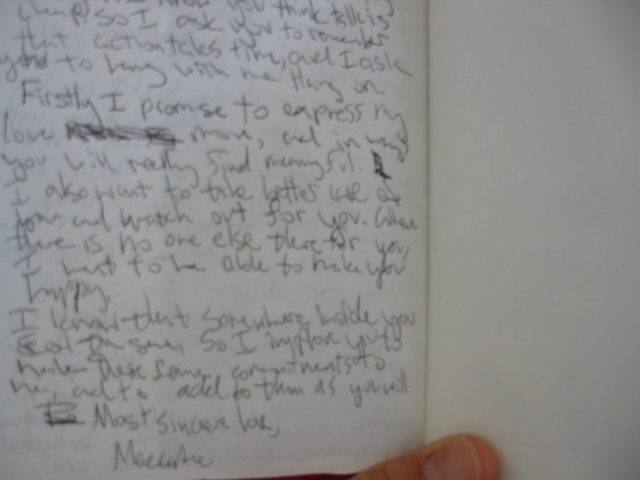 you think talk is
cheap so I ask you to remember
that action takes time, and I ask
you to hang with me. Hang on.
Firstly I promise to express my
love more, and in ways
you will really find meaningful.
I also want to take better care of
you and watch out for you. When
there is no one else there for you,
I want to be able to make you
happy.
I know that somewhere inside you
feel the same, so I implore you to
make these same commitments to
me, and to add to them as you will
Most sincere love,